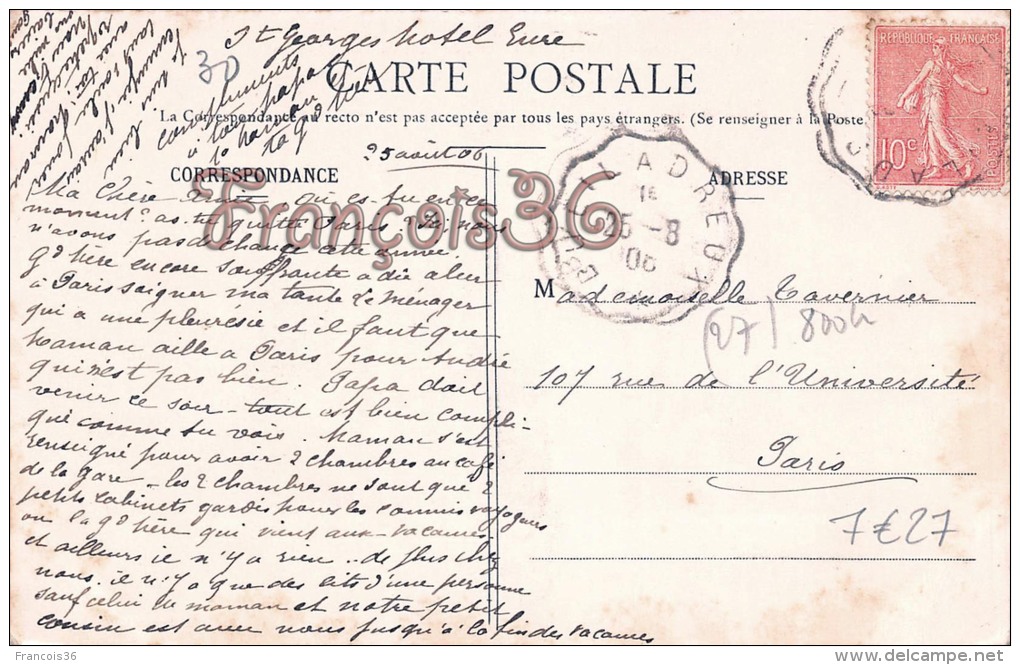 St Georges Motel Eure
30
CARTE POSTALE
compliments
à ton papa
ta maman
ta gd mère
La Correspondance au recto n'est pas acceptée par tous les pays étrangers. (Se renseigner à la Poste
25 août 06
CORRESPONDANCE
ADRESSE
RÉPUBLIQUE FRANÇAISE
10c
POSTES
A DREUX
25 -8
06
François36
Ma Chère où es-tu en ce
moment? as-tu quitté Paris. Ici nous
n'avons pas de chance cette année.
gd mère encore souffrante a dû aller
à Paris soigner ma tante Le Ménager
qui a une pleuresie et il faut que
Maman aille à Paris pour André
qui n'est pas bien. Papa doit
venir ce soir - tout est bien compli-
qué comme tu vois. Maman s'est
renseigné pour avoir 2 chambres au café
de la gare - les 2 chambres ne sont que 2
petits cabinets gardés pour les commis voyageurs
ou la gd mère qui vient aux vacances
et ailleurs il n'y a rien - de plus chez
nous il n'y a que des lits d'une personne
sauf celui de maman et notre petit
cousin est avec nous jusqu'à la fin des vacances
Mademoiselle Tavernier
(27) 800h
107 rue de l'Université
Paris
7€27
Francois36